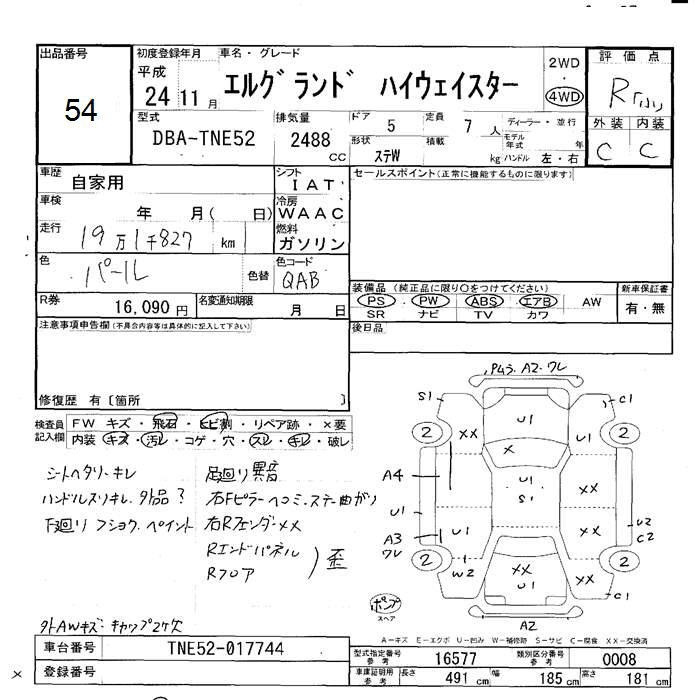 出品番号 初度登録年月 車名・グレード 評価点
54 平成 24 11月 エルグランド ハイウェイスター 2WD 4WD R
型式 排気量 ドア 定員 ディーラー・並行 外装 内装
DBA-TNE52 2488 CC 5 7人 モデル年式 年 C C
形状 ステW 積載 kg ハンドル 左・右
車歴 自家用 シフト IAT セールスポイント(正常に機能するものに限ります)
車検 年 月( 日) 冷房 WAAC
走行 19万1千827 km 燃料 ガソリン
色 パール 色替 色コード QAB 装備品 (純正品に限り○をつけてください) 新車保証書
PS・PW・ABS・エアB・AW 有・無
R券 16,090円 名変通知期限 月 日 SR ナビ TV カワ
注意事項申告欄(不具合内容等は具体的に記入して下さい) 後日品
修復歴 有〔箇所 〕
検査員記入欄 FW キズ・飛石・ヒビ割・リペア跡・×要
内装・キズ・汚レ・コゲ・穴・スレ・キレ・破レ
P4ろ.A2.ワレ
S1 C1
U1
2 XX U1 2
X
シートヘタリ・キレ 足廻り異音 A4 U1 S1 XX
ハンドルスリキレ.外品? 右Fピラーヘコミ.ステー曲がり U1
下廻りフショク.ペイント 右Rフェンダーメメ A3 ワレ U1 XX U2 C2
Rエンドパネル
Rフロア 歪
2 W2 XX U1 XX 2
C1
ポンプ スペア
A2
外AWキズ.キャップ2ケ欠
A-キズ E-エクボ U-凹み W-補修跡 S-サビ C-腐食 XX-交換済
車台番号 TNE52-017744 型式指定番号 参考 16577 類別区分番号 参考 0008
× 登録番号 車庫証明用 参考 長さ 491cm 幅 185cm 高さ 181cm